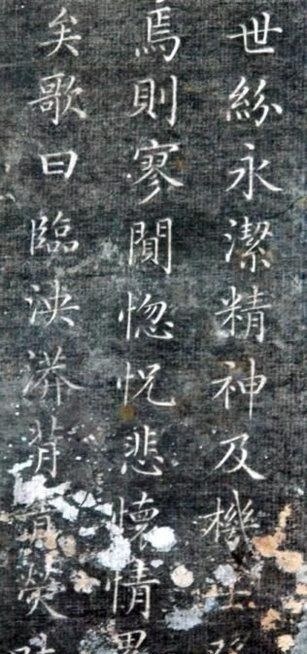 世紛永潔精神及機士
焉則寥閴惚怳悲懷情
矣歌曰臨泱漭背青熒